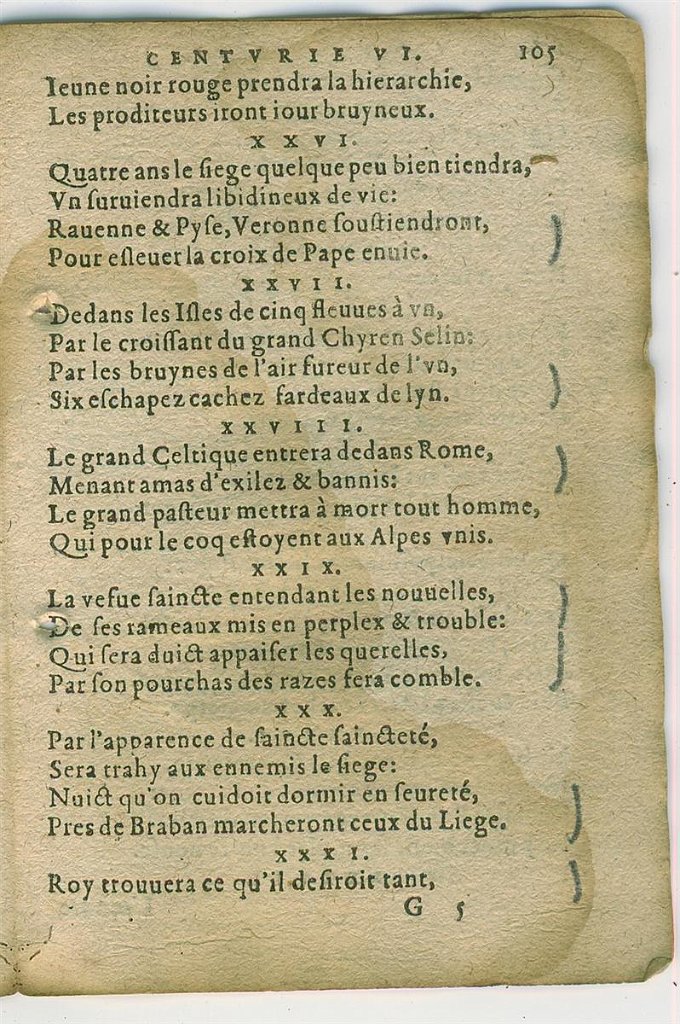 CENTVRIE VI. 105
Ieune noir rouge prendra la hierarchie,
Les proditeurs iront iour bruyneux.
XXVI.
Quatre ans le ſiege quelque peu bien tiendra,
Vn ſuruiendra libidineux de vie:
Rauenne & Pyſe, Veronne ſouſtiendront,
Pour eſleuer la croix de Pape enuie.
XXVII.
Dedans les Iſles de cinq fleuues à vn,
Par le croiſſant du grand Chyren Selin:
Par les bruynes de l'air fureur de l'vn,
Six eſchapez cachez fardeaux de lyn.
XXVIII.
Le grand Celtique entrera dedans Rome,
Menant amas d'exilez & bannis:
Le grand paſteur mettra à mort tout homme,
Qui pour le coq eſtoyent aux Alpes vnis.
XXIX.
La vefue ſaincte entendant les nouuelles,
De ſes rameaux mis en perplex & trouble:
Qui ſera duict appaiſer les querelles,
Par ſon pourchas des razes ſera comble.
XXX.
Par l'apparence de ſaincte ſaincteté,
Sera trahy aux ennemis le ſiege:
Nuict qu'on cuidoit dormir en ſeureté,
Pres de Braban marcheront ceux du Liege.
XXXI.
Roy trouuera ce qu'il deſiroit tant,
G 5